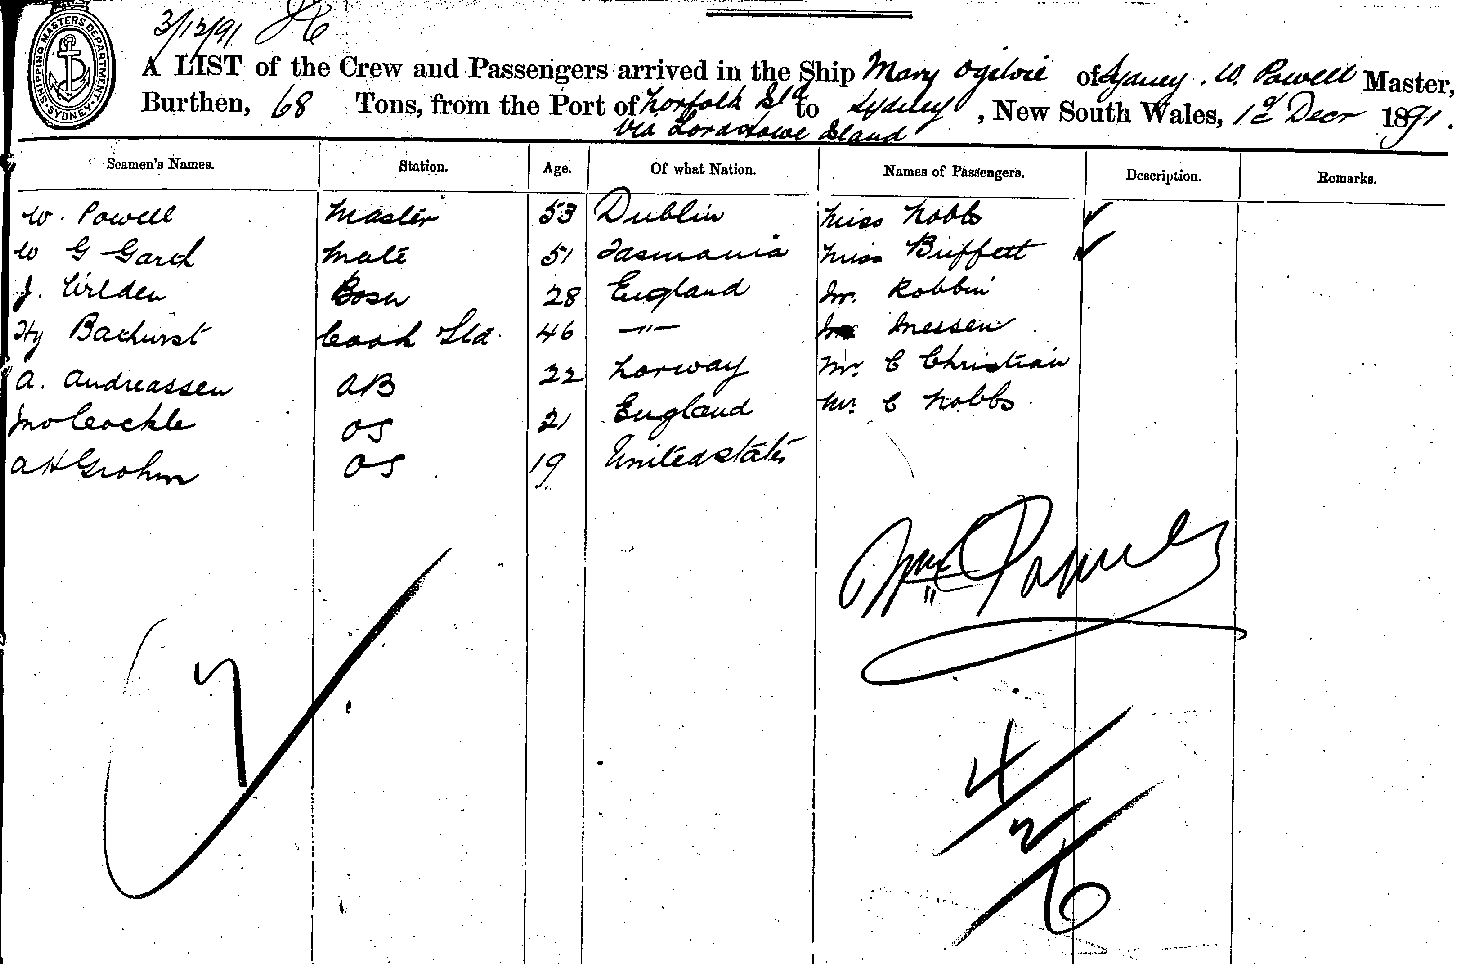 3/12/91
SHIPPING MASTERS DEPARTMENT SYDNEY
A LIST of the Crew and Passengers arrived in the Ship Mary Ogilvie of Sydney. W. Powell Master,
Burthen, 68 Tons, from the Port of Norfolk Isld to Sydney, New South Wales, 1st Decr 1891.
via Lord Howe Island
Seamen's Names. Station. Age. Of what Nation. Names of Passengers. Description. Remarks.
W. Powell Master 53 Dublin Miss Nobbs
W G Mate 51 Tasmania Miss Buffett
J. Wilden Bosn 28 England Mr. Robbin
Hy Bathurst Cook Std. 46 —"— Messen
A. Andreassen AB 22 Norway Mr. C Christian
Jno Cockle OS 21 England Mr. C Nobbs
A H Grohm OS 19 United states
Wm Powell
7
4
2
6